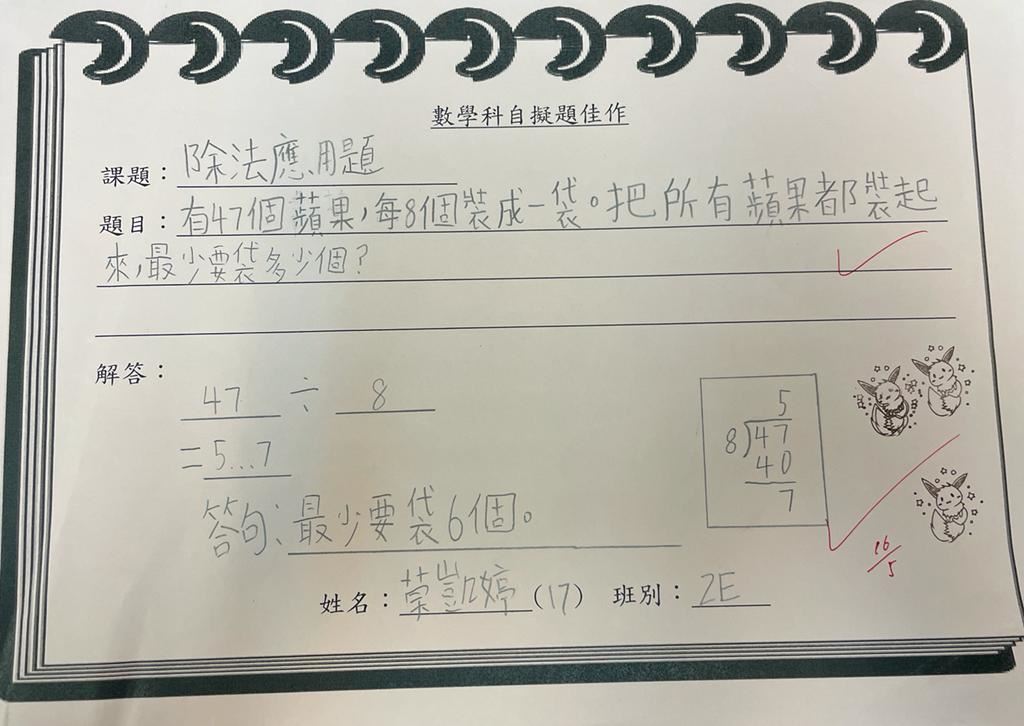 數學科自擬題佳作
課題：除法應用題
題目：有47個蘋果，每8個裝成一袋。把所有蘋果都裝起
來，最少要袋多少個？
解答：
47 ÷ 8
=5...7
5
8)47
40
7
答句：最少要袋6個。
16/5
姓名：葉凱婷(17) 班別：2E